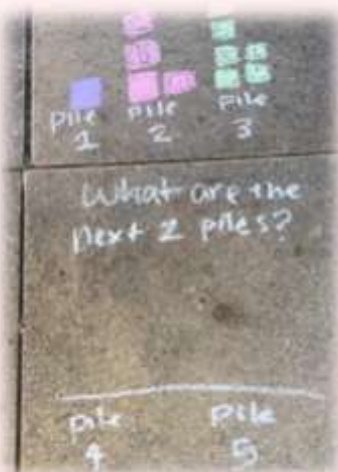 pile pile pile
1 2 3
What are the
next 2 piles?
pile pile
4 5